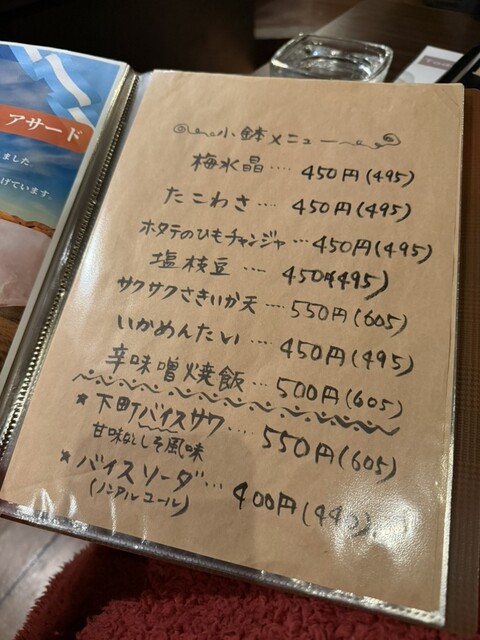 アサード
ました
げています。
小鉢メニュー
梅水晶‥‥ 450円(495)
たこわさ ‥‥ 450円(495)
ホタテのひもチャンジャ ‥‥ 450円(495)
塩枝豆 ‥‥ 450円(495)
サクサクさきいか天 ‥‥ 550円(605)
いかめんたい ‥‥ 450円(495)
辛味噌焼飯 ‥‥ 500円(605)
★下町バイスサワ‥‥ 550円(605)
甘味なとしそ風味
★バイスソーダ‥‥ 400円(440)
(ノンアルコール)